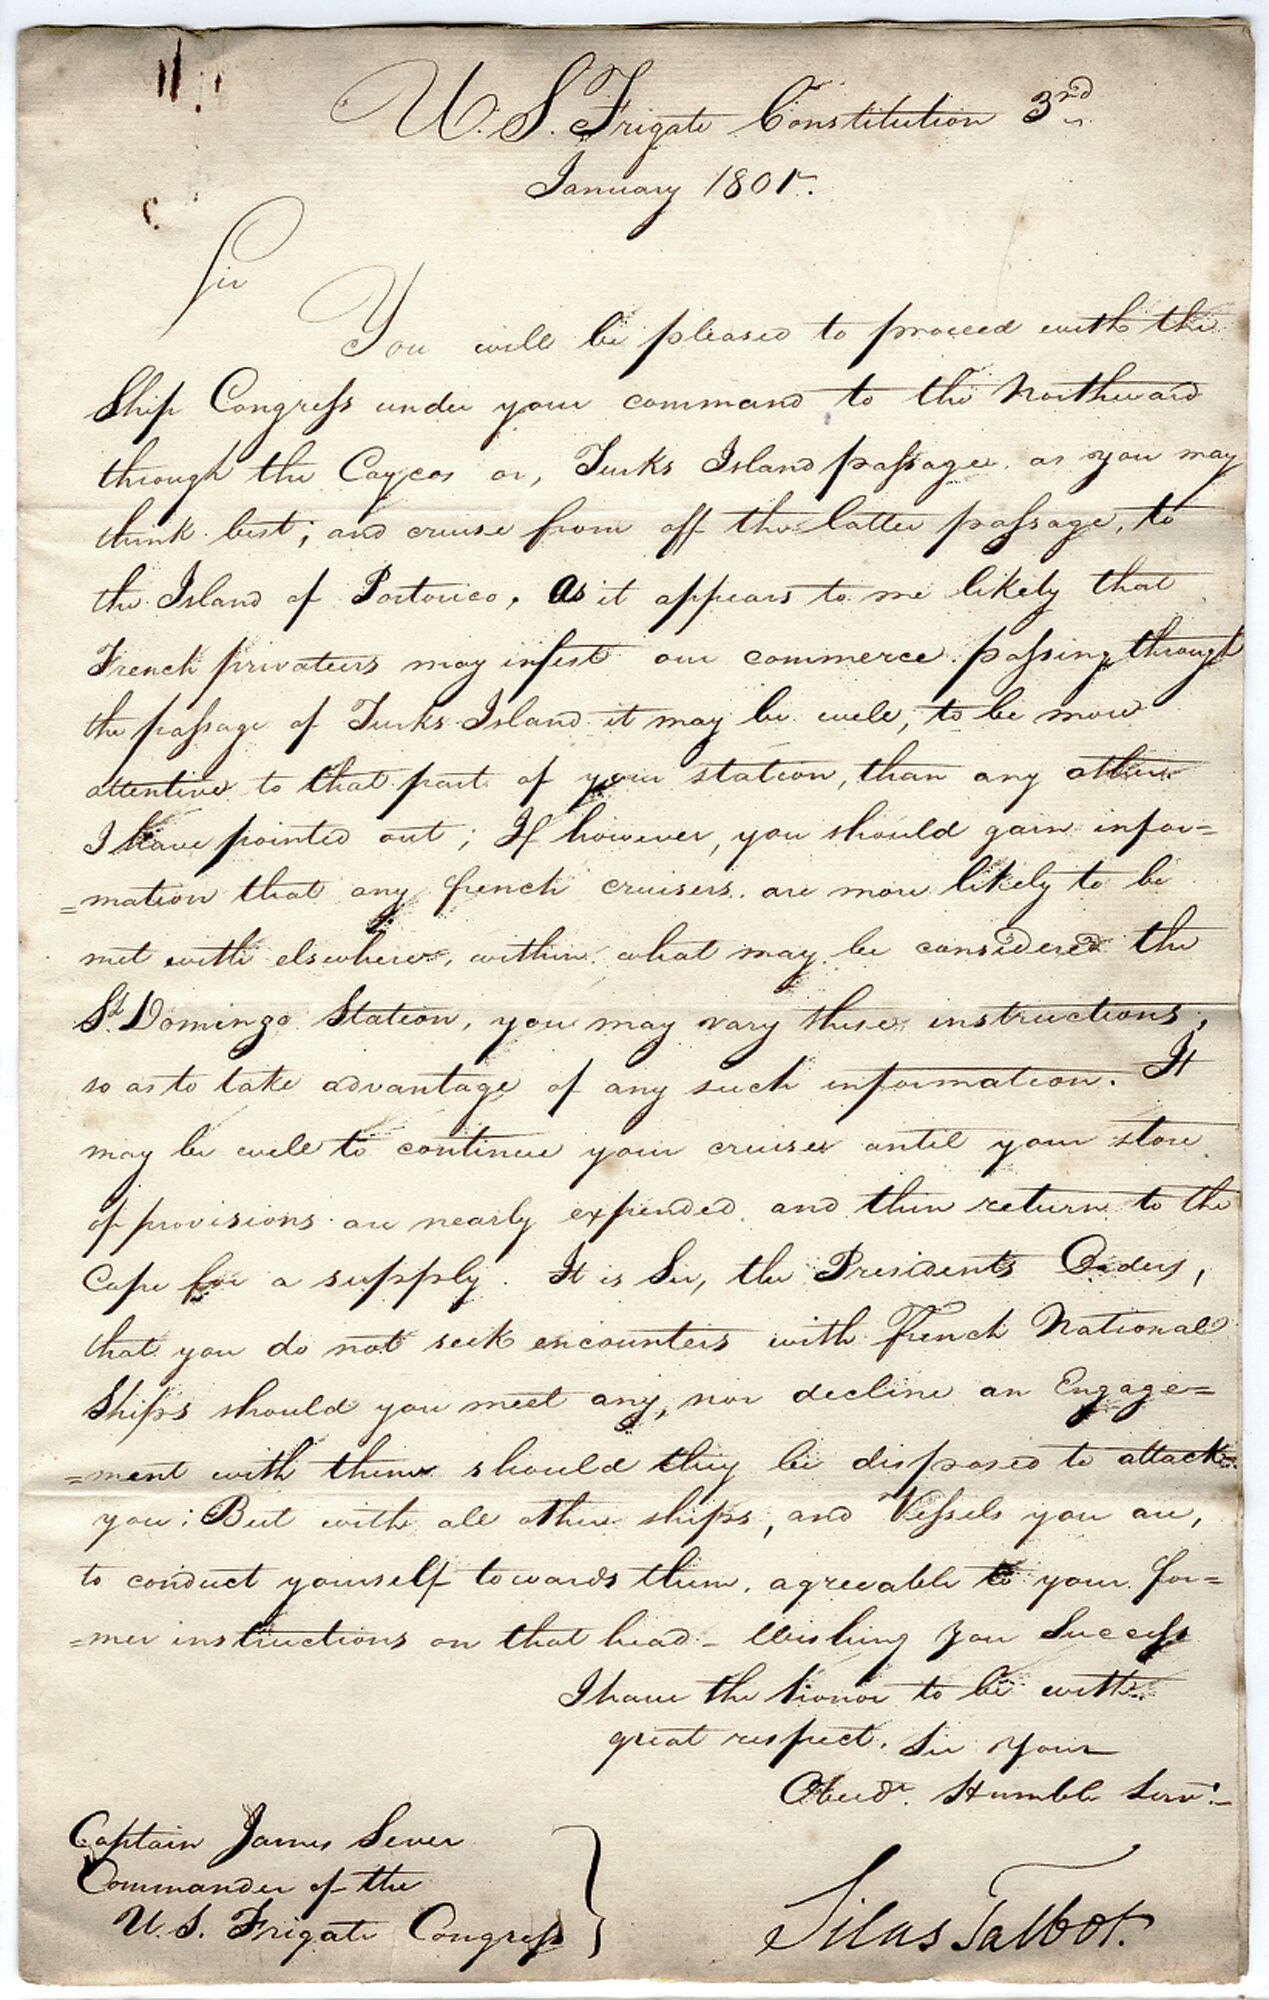 U. S. Frigate Constitution 3rd
January 1801.
Sir
You will be pleased to proceed with the
Ship Congress under your command to the Northward
through the Caycos or, Turks Island passage as you may
think best; and cruise from off the latter passage, to
the Island of Portorico, as it appears to me likely that
French privateers may infest our commerce passing through
the passage of Turks Island it may be well, to be more
attentive to that part of your station, than any other
I have pointed out; If however, you should gain infor=
=mation that any french cruisers are more likely to be
met with elsewhere, within what may be considered the
St. Domingo Station, you may vary these instructions,
so as to take advantage of any such information. It
may be well to continue your cruise until your store
of provisions are nearly expended and then return to the
Cape for a supply. It is Sir, the Presidents Orders,
that you do not seek encounters with French National
Ships should you meet any, nor decline an Engage=
=ment with them should they be disposed to attack
you; But with all other ships, and Vessels you are,
to conduct yourself towards them, agreeable to your for=
=mer instructions on that head - Wishing you Success
I have the honor to be with
great respect. Sir Your
Obedt. Humble Servt.
Captain James Sever
Commander of the
U. S. Frigate Congress
Silas Talbot.